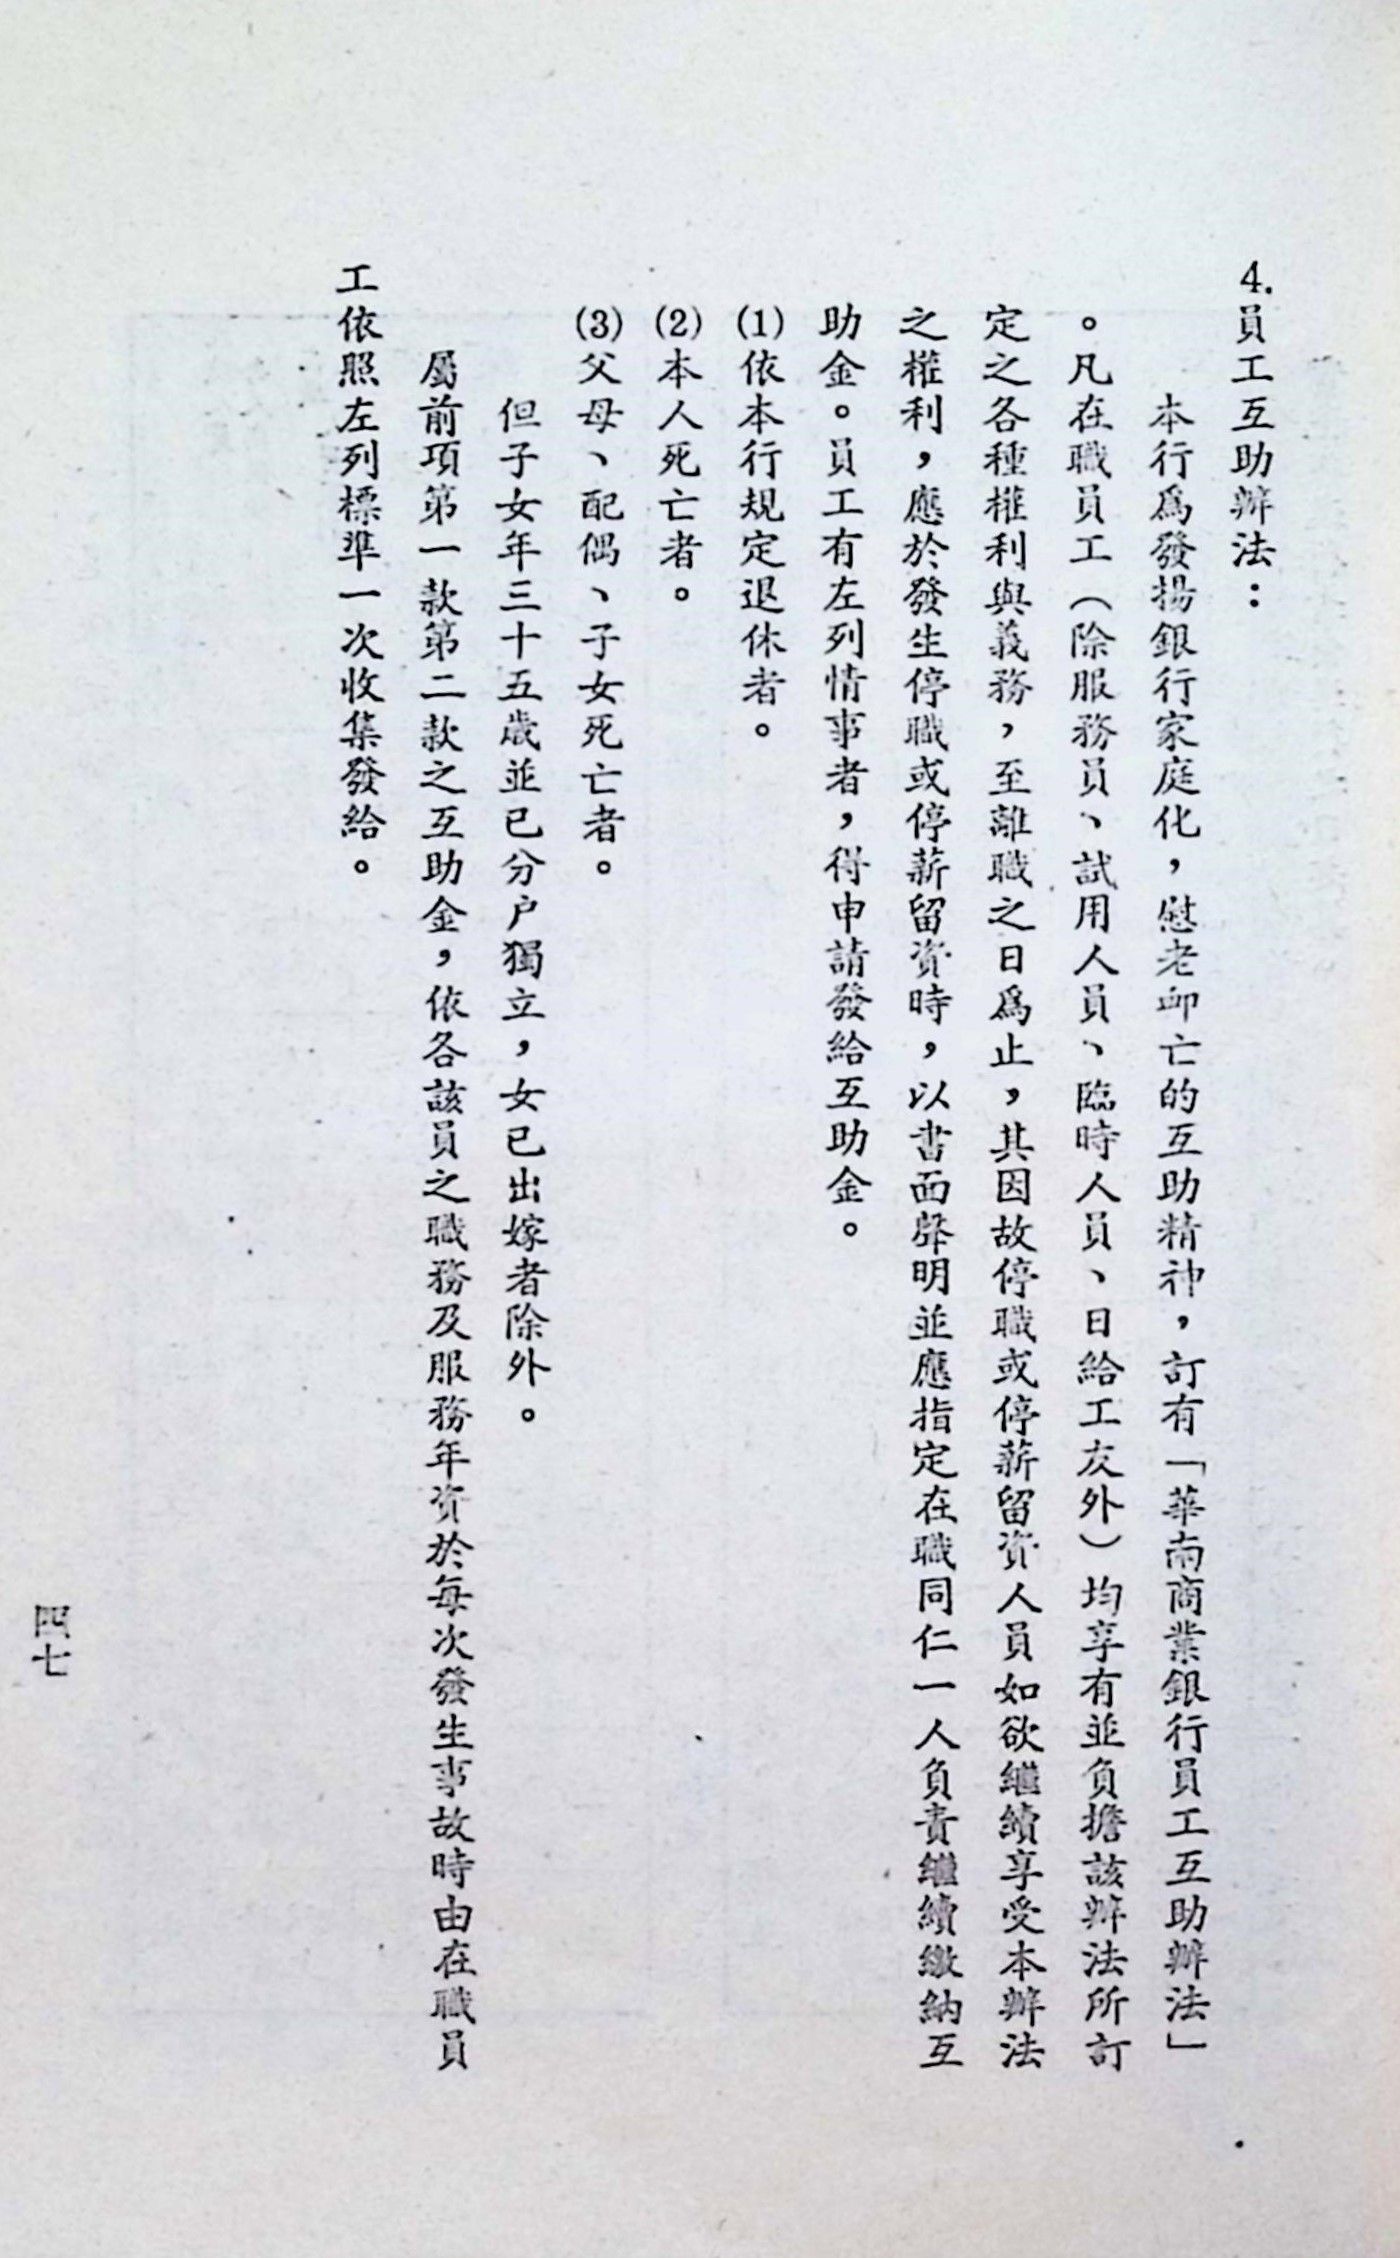 4.員工互助辦法：
本行爲發揚銀行家庭化，慰老卹亡的互助精神，訂有「華南商業銀行員工互助辦法」
。凡在職員工（除服務員、試用人員、臨時人員、日給工友外）均享有並負擔該辦法所訂
定之各種權利與義務，至離職之日爲止，其因故停職或停薪留資人員如欲繼續享受本辦法
之權利，應於發生停職或停薪留資時，以書面聲明並應指定在職同仁一人負責繼續繳納互
助金。員工有左列情事者，得申請發給互助金。
(1)依本行規定退休者。
(2)本人死亡者。
(3)父母、配偶、子女死亡者。
但子女年三十五歲並已分户獨立，女已出嫁者除外。
屬前項第一款第二款之互助金，依各該員之職務及服務年資於每次發生事故時由在職員
工依照左列標準一次收集發給。
四七